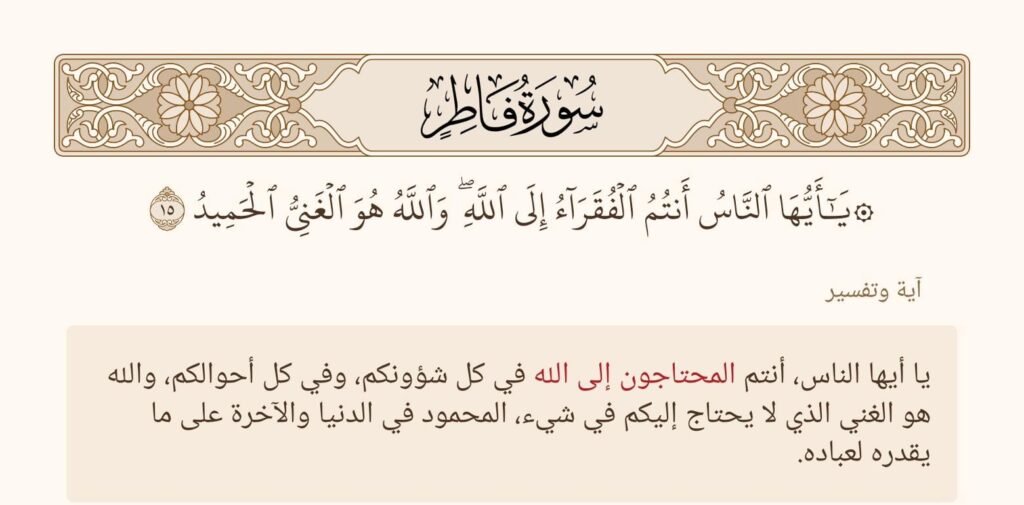 سُورَةُ فَاطِرٍ
۞ يَـٰٓأَيُّهَا ٱلنَّاسُ أَنتُمُ ٱلْفُقَرَآءُ إِلَى ٱللَّهِ ۖ وَٱللَّهُ هُوَ ٱلْغَنِىُّ ٱلْحَمِيدُ ١٥
آية وتفسير
يا أيها الناس، أنتم المحتاجون إلى الله في كل شؤونكم، وفي كل أحوالكم، والله
هو الغني الذي لا يحتاج إليكم في شيء، المحمود في الدنيا والآخرة على ما
يقدره لعباده.